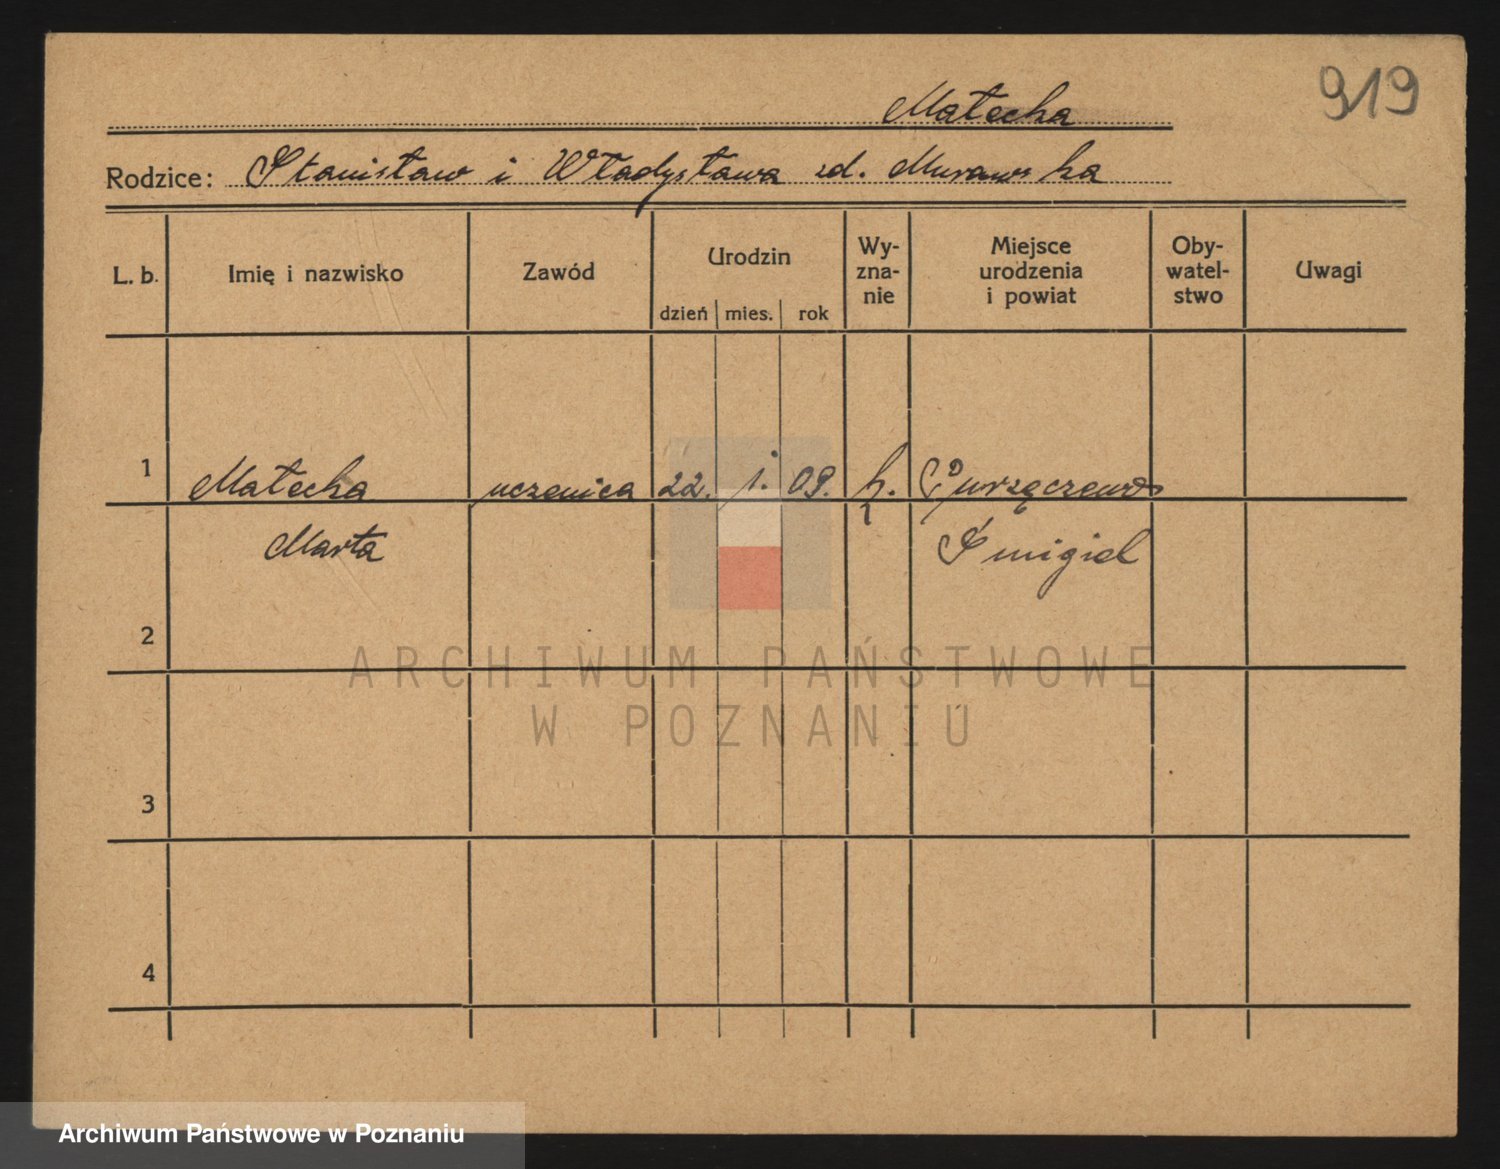 919
Małecka
Rodzice: Stanisław i Władysława zd. Murawska
L. b. Imię i nazwisko Zawód Urodzin Wy-zna-nie Miejsce urodzenia i powiat Oby-watel-stwo Uwagi
dzień mies. rok
1 Małecka uczenica 22. 1. 09. k.
Marta Śmigiel
2
ARCHIWUM PAŃSTWOWE
W POZNANIU
3
4
Archiwum Państwowe w Poznaniu